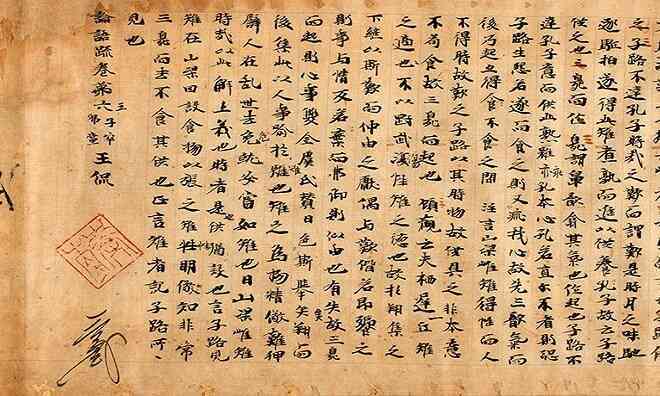 之子路不達孔子時哉之歎而謂歎是時月之味馳
逐驅拍遂得此雉煮熟而進以供養孔子故云子路
供之也三臭而作臭謂鼻歆翕其氣也作起也子路不
達孔子意而供此熟雞乖孔本心孔若直尓不者則恐
子路生怨若遂而食之則又乖我心故先三歎氣而
後乃起得食不食之間 注言山梁雌雉得性而人
不得時故歎之子路以其時物故供具之非本意
不苟食故三臭而起也 顧歡云夫栖遲丘雉
之適也不以剛武傷性雌之德也故於翔集之
下継以斯歎而仲由之獻偶与歎偕若即饗之
則事与情反若棄而弗御則似由也有失故三臭
而起則心事雙合虞氏賛曰色斯舉矣翔而
後集此以人事喻於雉也雉之為物精儆難狎
譬人在乱世去危就安當如雉也曰山梁雌雉
時哉以此解上義也時者是也供猶設也言子路見
雉在山梁因設食物以張之雉性明儆知非常
三臭而去不食其供也正言雌者記子路所
見也
論語疏卷第六 王侃